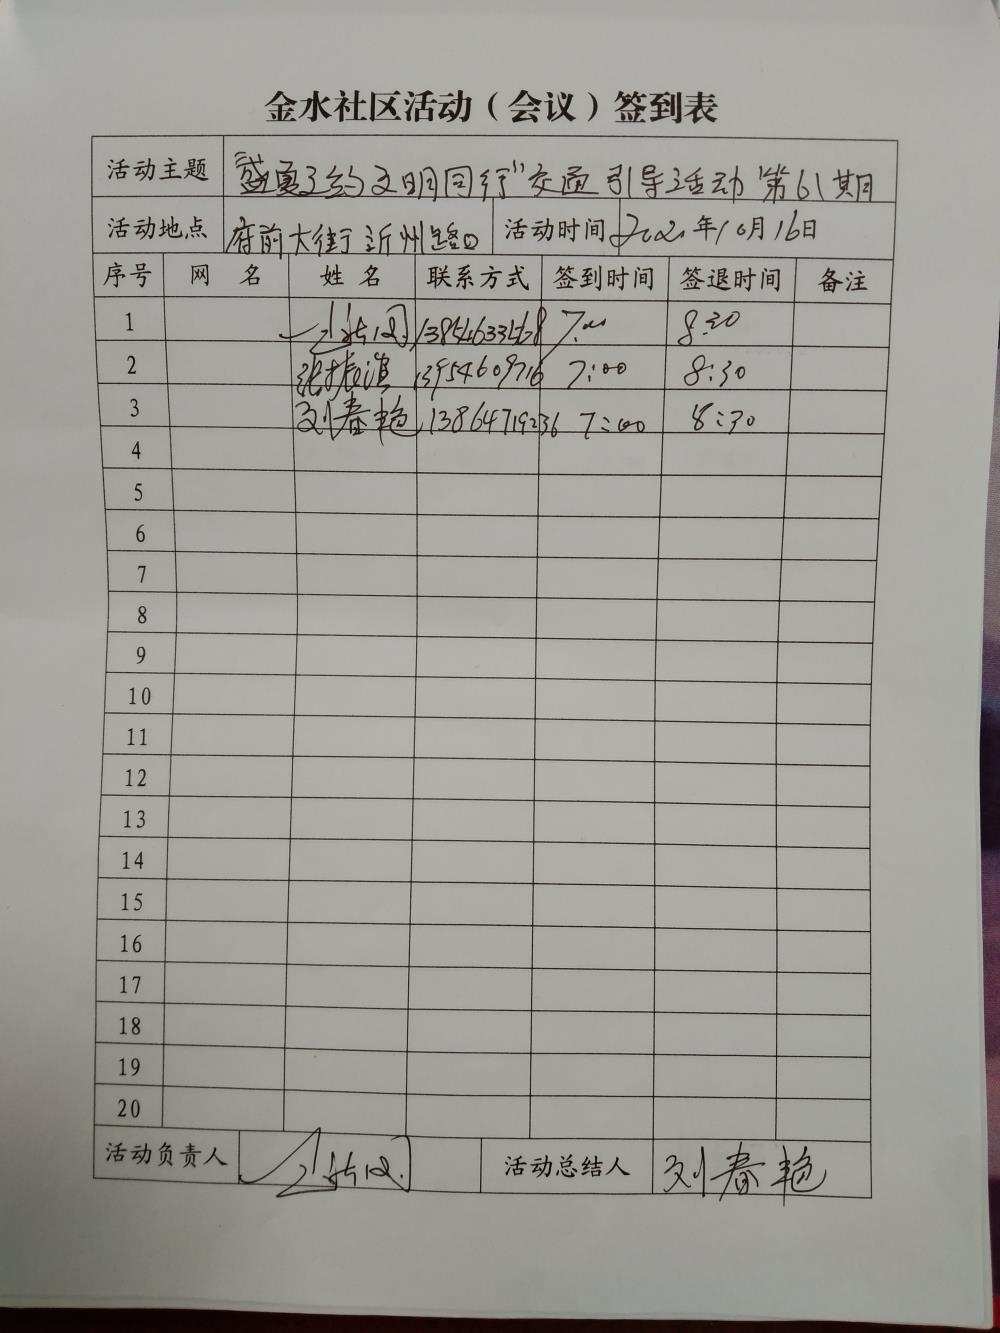 金水社区活动（会议）签到表
活动主题 "盛夏之约文明同行"交通引导活动第61期
活动地点 府前大街沂州路口 活动时间 2020年10月16日
序号 网 名 姓 名 联系方式 签到时间 签退时间 备注
1 7:00 8:30
2 13954609716 7:00 8:30
3 刘春艳 13864719236 7:00 8:30
4
5
6
7
8
9
10
11
12
13
14
15
16
17
18
19
20
活动负责人 活动总结人 刘春艳